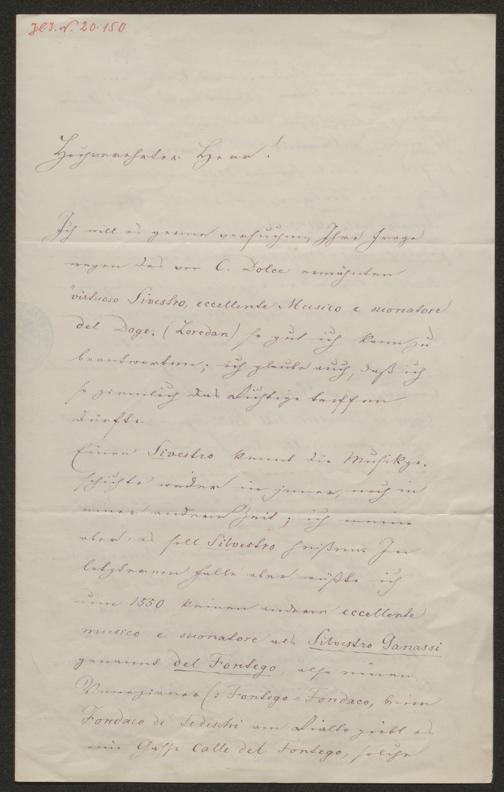 JCI. N. 20.150
Hochverehrter Herr!
Ich will es gerne versuchen, Ihre Frage
wegen des von C. Dolce erwähnten
"virtuoso Sivestro, eccellente Musico e suonatore
del Doge. (Loredan) so gut ich kann, zu
beantworten; ich glaube auch, daß ich
so ziemlich das Richtige treffen
dürfte.
Einen Sivestro kennt die Musikge-
schichte weder in jener, noch in
einer anderen Zeit; ich meine
aber: es soll Silvestro heißen. Im
letzteren Falle aber wüßte ich
um 1550 keinen andern eccellente
musico e suonatore als Silvestro Ganassi
genannt del Fontego also einen
Venezianer (: Fontego = Fondaco, beim
Fondaco de tedeschi am Rialto giebt es
eine Gasse Calle del Fontego, solche